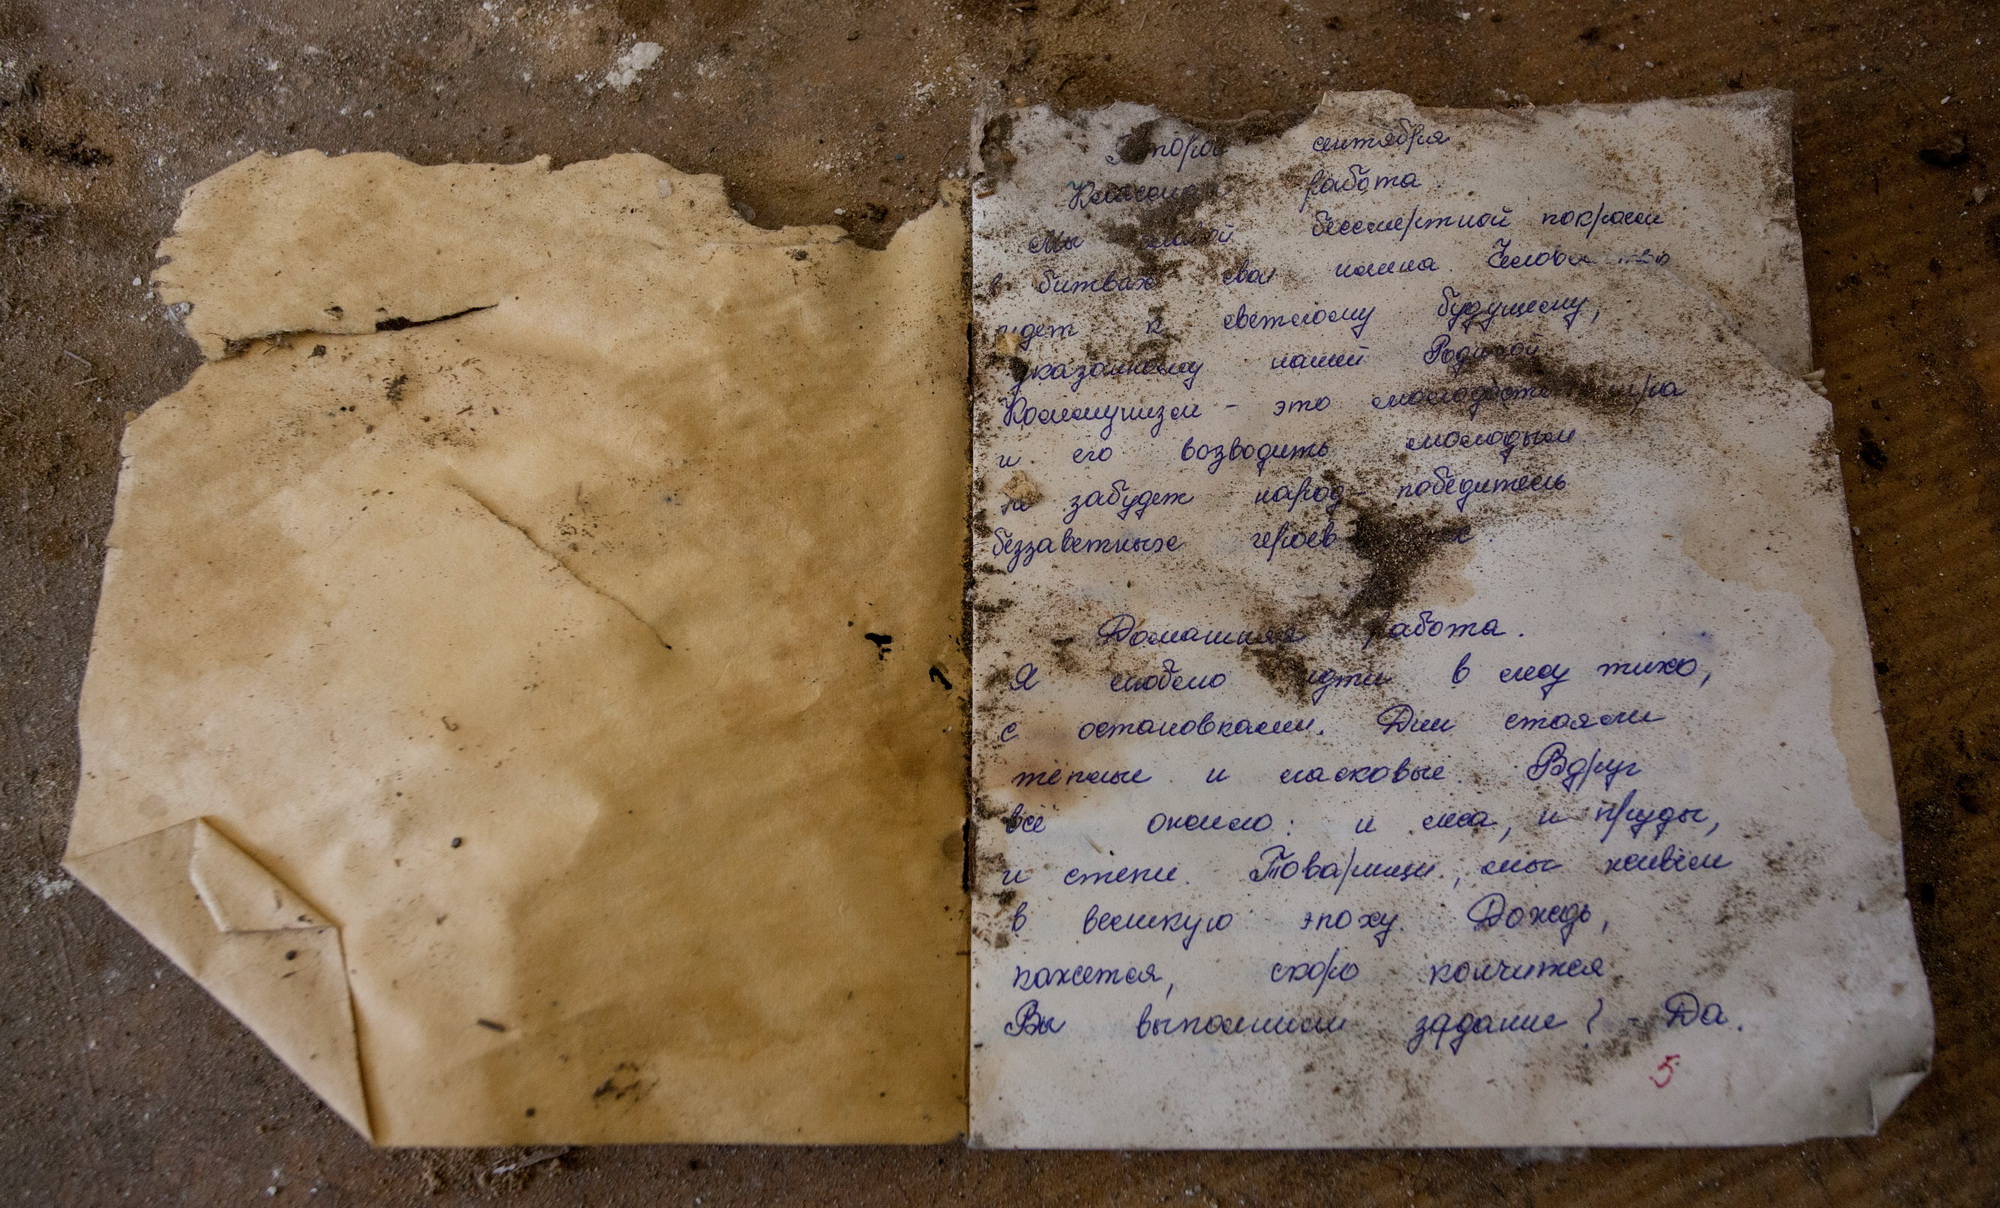 сентября
работа
Мы славой бессмертной покрыли
в битвах свои имена. Человечество
идет к светлому будущему,
указанному нашей Родиной
Коммунизм - это молодость мира
и его возводить молодым.
не забудет народ-победитель
беззаветных героев
Домашняя работа.
Я люблю идти в лесу тихо,
с остановками. Дни стояли
тёплые и ласковые. Вдруг
всё ожило: и леса, и пруды,
и степи. Товарищи, мы живём
в великую эпоху. Дождь,
кажется, скоро кончится.
Вы выполнили задание? - Да.
5